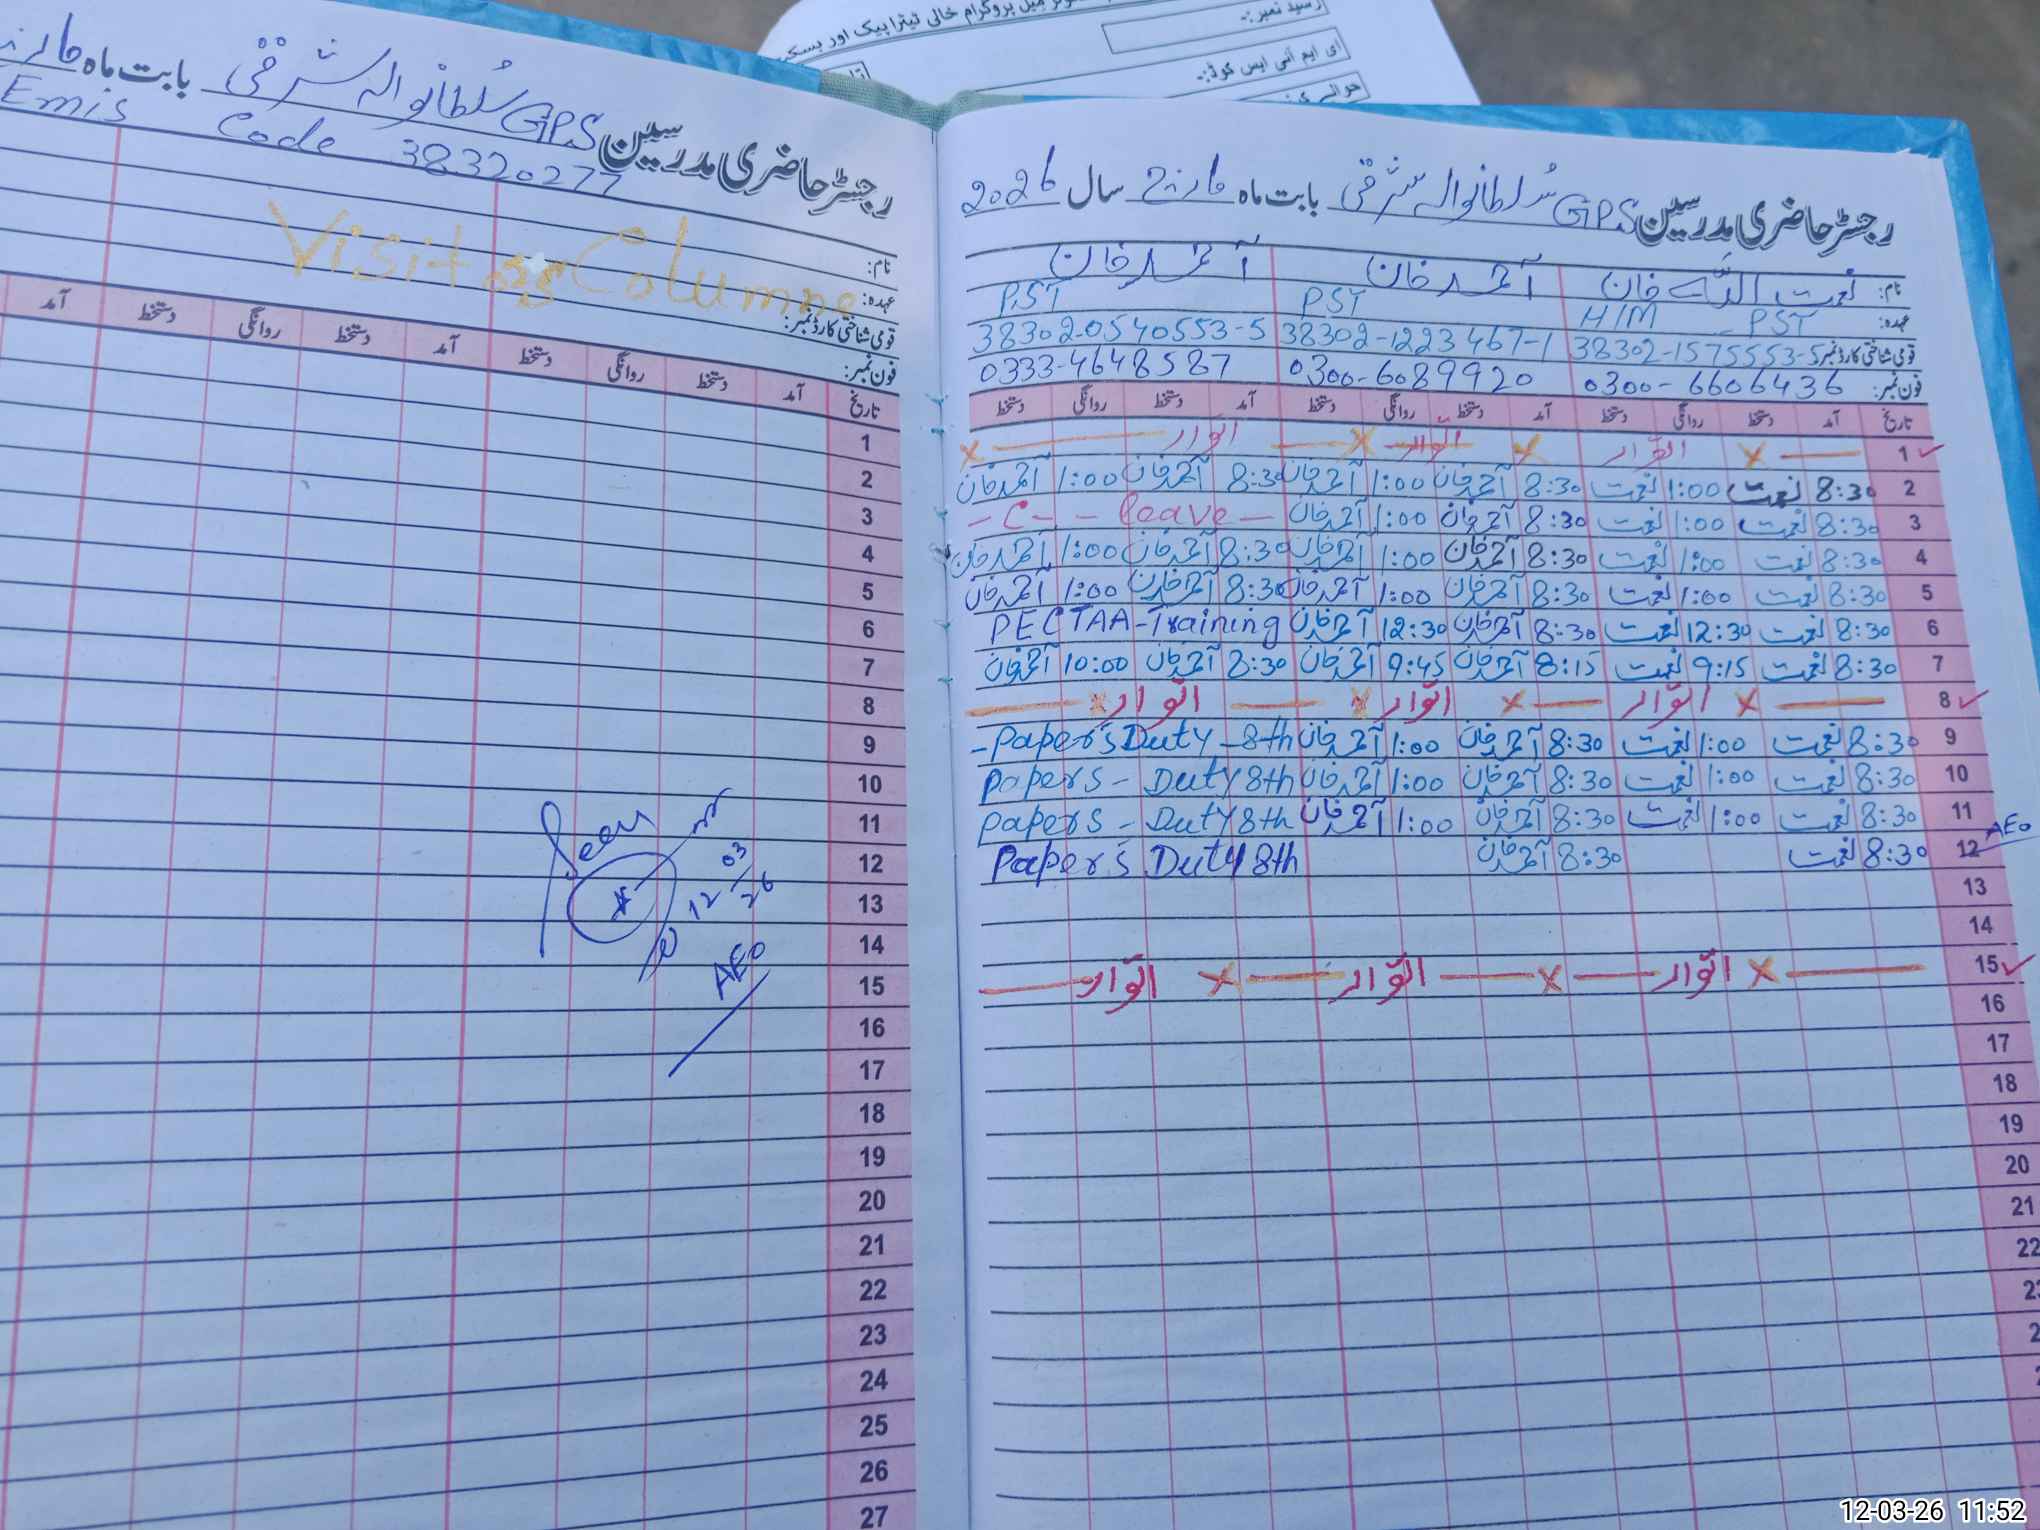 رسید نمبر:۔
ای ایم آئی ایس کوڈ:۔
رجسٹر حاضری مدرسین GPS سُلطانوالہ شرقی بابت ماہ مارچ
Emis Code 38320277
Visitors Columne
نام:
عہدہ:
قومی شناختی کارڈ نمبر:
فون نمبر:
تاریخ آمد دستخط روانگی دستخط آمد دستخط روانگی دستخط آمد
1
2
3
4
5
6
7
8
9
10
11
12
13
14
15
16
17
18
19
20
21
22
23
24
25
26
27
Seen
12/03/26
AEO
رجسٹر حاضری مدرسین GPS سُلطانوالہ شرقی بابت ماہ مارچ سال 2026
نام: نعمت اللہ خان احمد خان احمد خان
عہدہ: H/M - PST PST PST
قومی شناختی کارڈ نمبر 38302-1575553-5 38302-1223467-1 38302-0540553-5
فون نمبر: 0300-6606436 0300-6089920 0333-4648587
تاریخ آمد دستخط روانگی دستخط آمد دستخط روانگی دستخط آمد دستخط روانگی دستخط
1 اتوار اتوار اتوار
2 8:30 نعمت 1:00 نعمت 8:30 احمد خان 1:00 احمد خان 8:30 احمد خان 1:00 احمد خان
3 8:30 نعمت 1:00 نعمت 8:30 احمد خان 1:00 احمد خان - C - leave -
4 8:30 نعمت 1:00 نعمت 8:30 احمد خان 1:00 احمد خان 8:30 احمد خان 1:00 احمد خان
5 8:30 نعمت 1:00 نعمت 8:30 احمد خان 1:00 احمد خان 8:30 احمد خان 1:00 احمد خان
6 8:30 نعمت 12:30 نعمت 8:30 احمد خان 12:30 احمد خان PECTAA-Training
7 8:30 نعمت 9:15 نعمت 8:15 احمد خان 9:45 احمد خان 8:30 احمد خان 10:00 احمد خان
8 اتوار اتوار اتوار
9 8:30 نعمت 1:00 نعمت 8:30 احمد خان 1:00 احمد خان -Paper's Duty - 8th
10 8:30 نعمت 1:00 نعمت 8:30 احمد خان 1:00 احمد خان Papers - Duty 8th
11 8:30 نعمت 1:00 نعمت 8:30 احمد خان 1:00 احمد خان Papers - Duty 8th
12 AEO 8:30 نعمت 8:30 احمد خان Paper's Duty 8th
13
14
15 اتوار اتوار اتوار
16
17
18
19
20
21
22
12-03-26 11:52